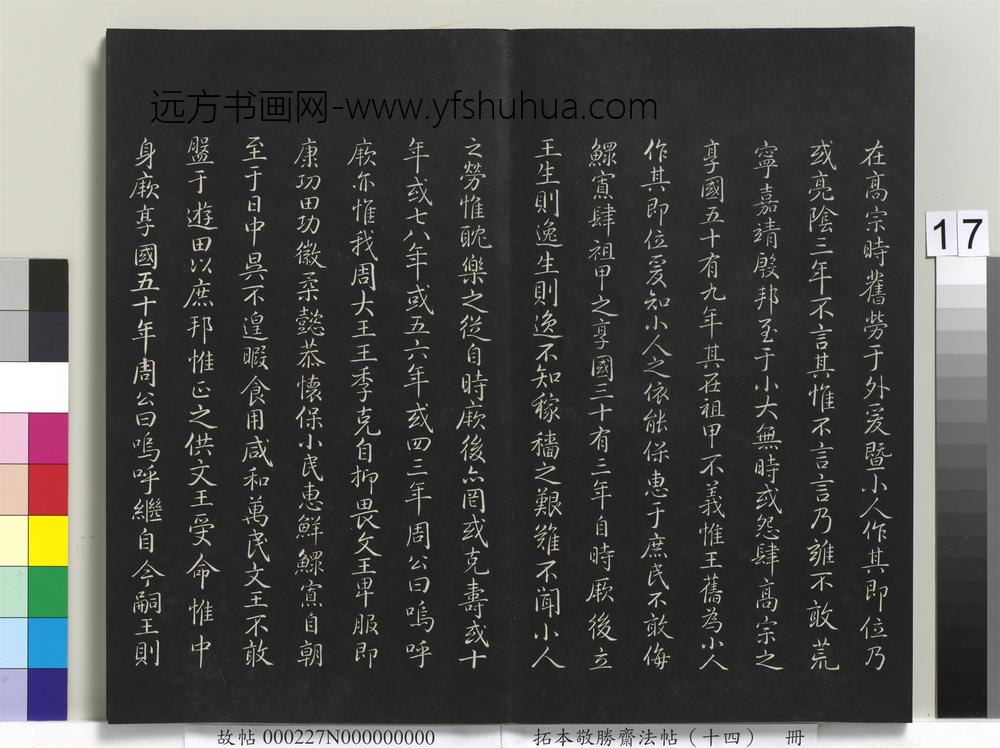 远方书画网-www.yfshuhua.com
在高宗時舊勞于外爰暨小人作其即位乃
或亮陰三年不言其惟不言言乃雍不敢荒
寧嘉靖殷邦至于小大無時或怨肆高宗之
享國五十有九年其在祖甲不義惟王舊為小人
作其即位爰知小人之依能保惠于庶民不敢侮
鰥寡肆祖甲之享國三十有三年自時厥後立
王生則逸生則逸不知稼穡之艱難不聞小人
之勞惟耽樂之從自時厥後亦罔或克壽或十
年或七八年或五六年或四三年周公曰嗚呼
厥亦惟我周大王王季克自抑畏文王卑服即
康功田功徽柔懿恭懷保小民惠鮮鰥寡自朝
至于日中昃不遑暇食用咸和萬民文王不敢
盤于遊田以庶邦惟正之供文王受命惟中
身厥享國五十年周公曰嗚呼繼自今嗣王則
17
故帖 000227N000000000
拓本敬勝齋法帖（十四） 冊